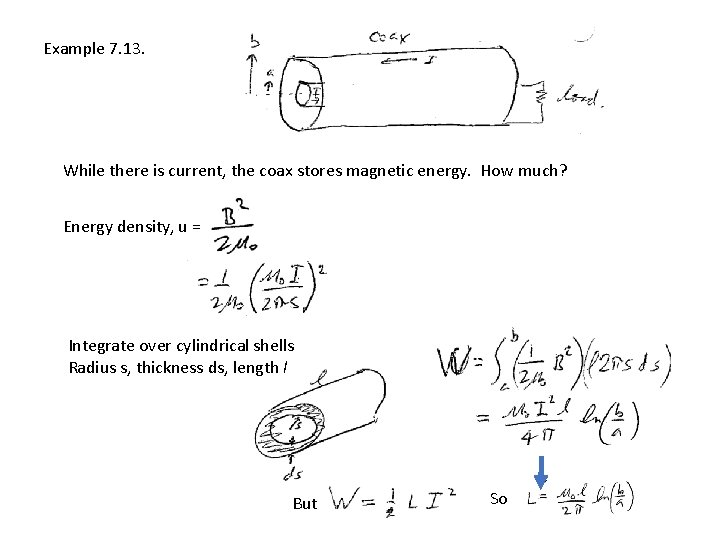 Example 7.13.
coax
b
a
I
I
load.
While there is current, the coax stores magnetic energy. How much?
Energy density, u = B²/2μ₀
= 1/2μ₀ (μ₀ I/2πs)²
Integrate over cylindrical shells
Radius s, thickness ds, length l
l
B
ds
W = ∫ₐᵇ (1/2μ₀ B²)(l2πs ds)
= μ₀ I² l/4π ln(b/a)
But W = ½ L I²
So L = μ₀ l/2π ln(b/a)